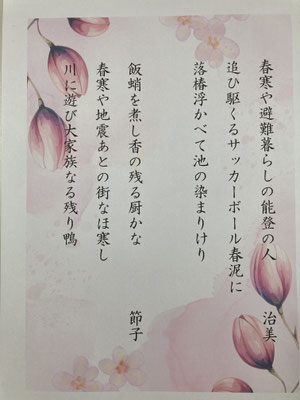 春寒や避難暮らしの能登の人　治美
追ひ駆くるサッカーボール春泥に
落椿浮かべて池の染まりけり
飯蛸を煮し香の残る厨かな　節子
春寒や地震あとの街なほ寒し
川に遊び大家族なる残り鴨